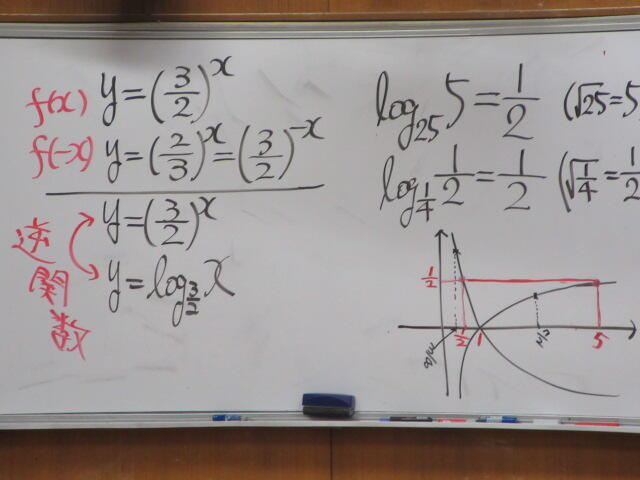 f(x) y=(3/2)^x
f(-x) y=(2/3)^x=(3/2)^-x
y=(3/2)^x
y=log_{3/2}x
逆関数
log_{25}5=1/2 (√25=5
log_{1/4}1/2=1/2 (√1/4=1/2
1/2
1/2 1 5